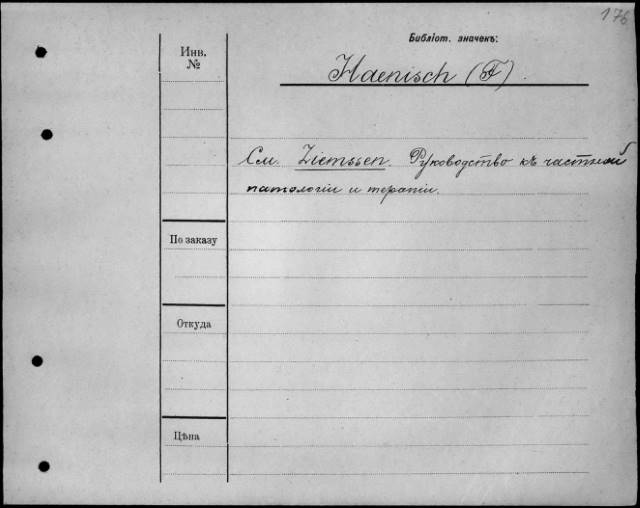 176
Библіот. значекъ:
Инв.
№
Haenisch (F).
См. Ziemssen. Руководство къ частной
патологіи и терапіи.
По заказу
Откуда
Цѣна